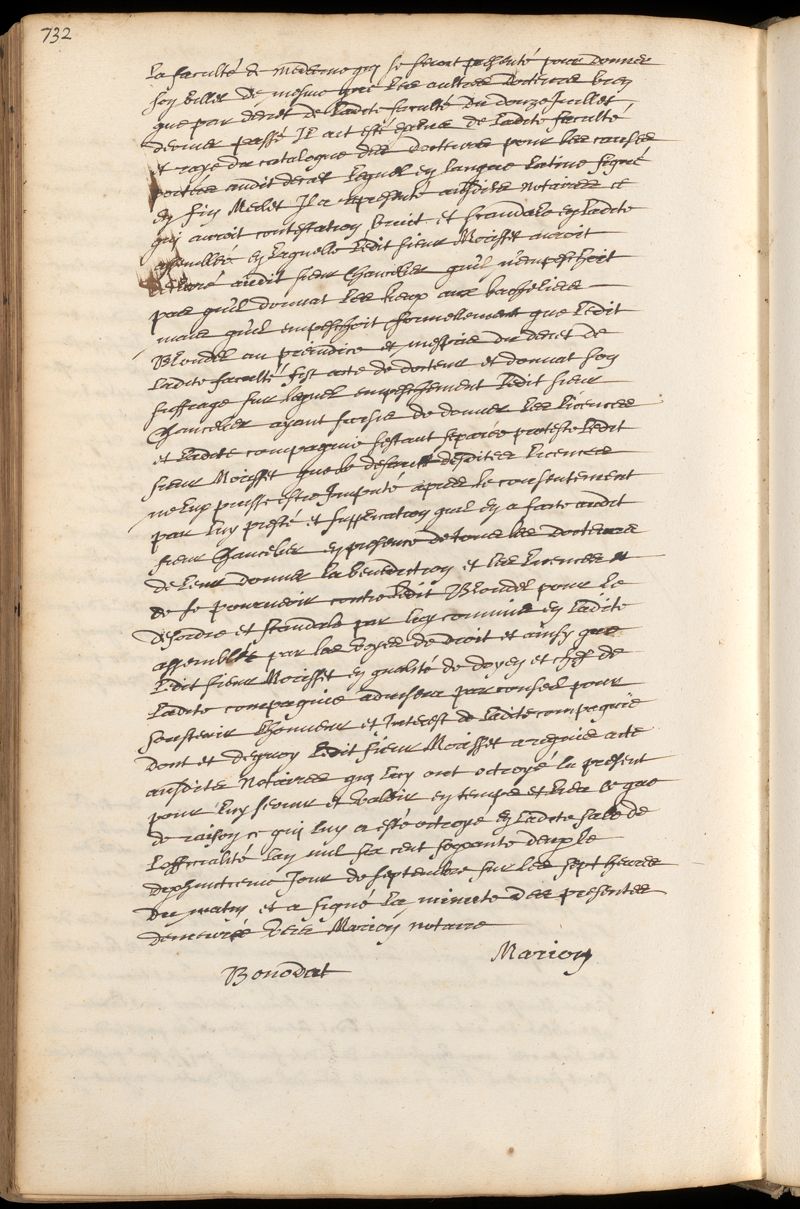 732
la faculté de medecine qui se seroit presenté pour donner
son billet de mesme que les aultres docteurs bien
que par decret de ladite faculté du douze Juillet
dernier passé Il ait esté exclus de ladite faculté
et rayé du catalogue des docteurs pour les causes
portées audit decret lequel en langue latine signé
en fin Merlet Il a presenté ausdits notaires ce
qui auroit contestation bruit et scandale en ladite
assemblée en laquelle ledit sieur Morisset auroit
declaré audit sieur Chancelier qu'il n'empeschoit
pas qu'il donnat les lieux aux bacheliers
mais qu'il empeschoit formellement que ledit
Blondel au prejudice et mespris du decret de
ladite faculté fist acte de docteur et donnat son
suffrage sur lequel empeschement ledit sieur
Chancelier ayant sursis de donner les licences
et ladite compagnie s'estant separée proteste ledit
sieur Morisset que le desordre desdites licences
ne luy puisse estre Imputé apres le consentement
par luy presté et supplication quil en a faite audit
sieur Chancelier en presence de tous les docteurs
de leur donner la benediction et les licences et
de se pourvoir contre ledit Blondel pour le
desordre et scandale par luy commis en ladite
assemblée par les voyes de droit et ainsy que
ledit sieur Morisset en qualité de doyen et chef de
ladite compagnie advisera par conseil pour
soustenir l'honneur et Interest de ladite compagnie
dont et dequoy ledit sieur Morisset a requis acte
ausdits notaires qui luy ont octroyé le present
pour luy servir et valoir en temps et lieu ce que
de raison ce qui luy a esté octroyé en ladite salle de
l'officialité l'an mil six cent soixante deux le
dixhuictieme Jour de septembre sur les sept heures
du matin et a signé la minute des presentes
demeurée vers Marion notaire
Marion
Bonodat